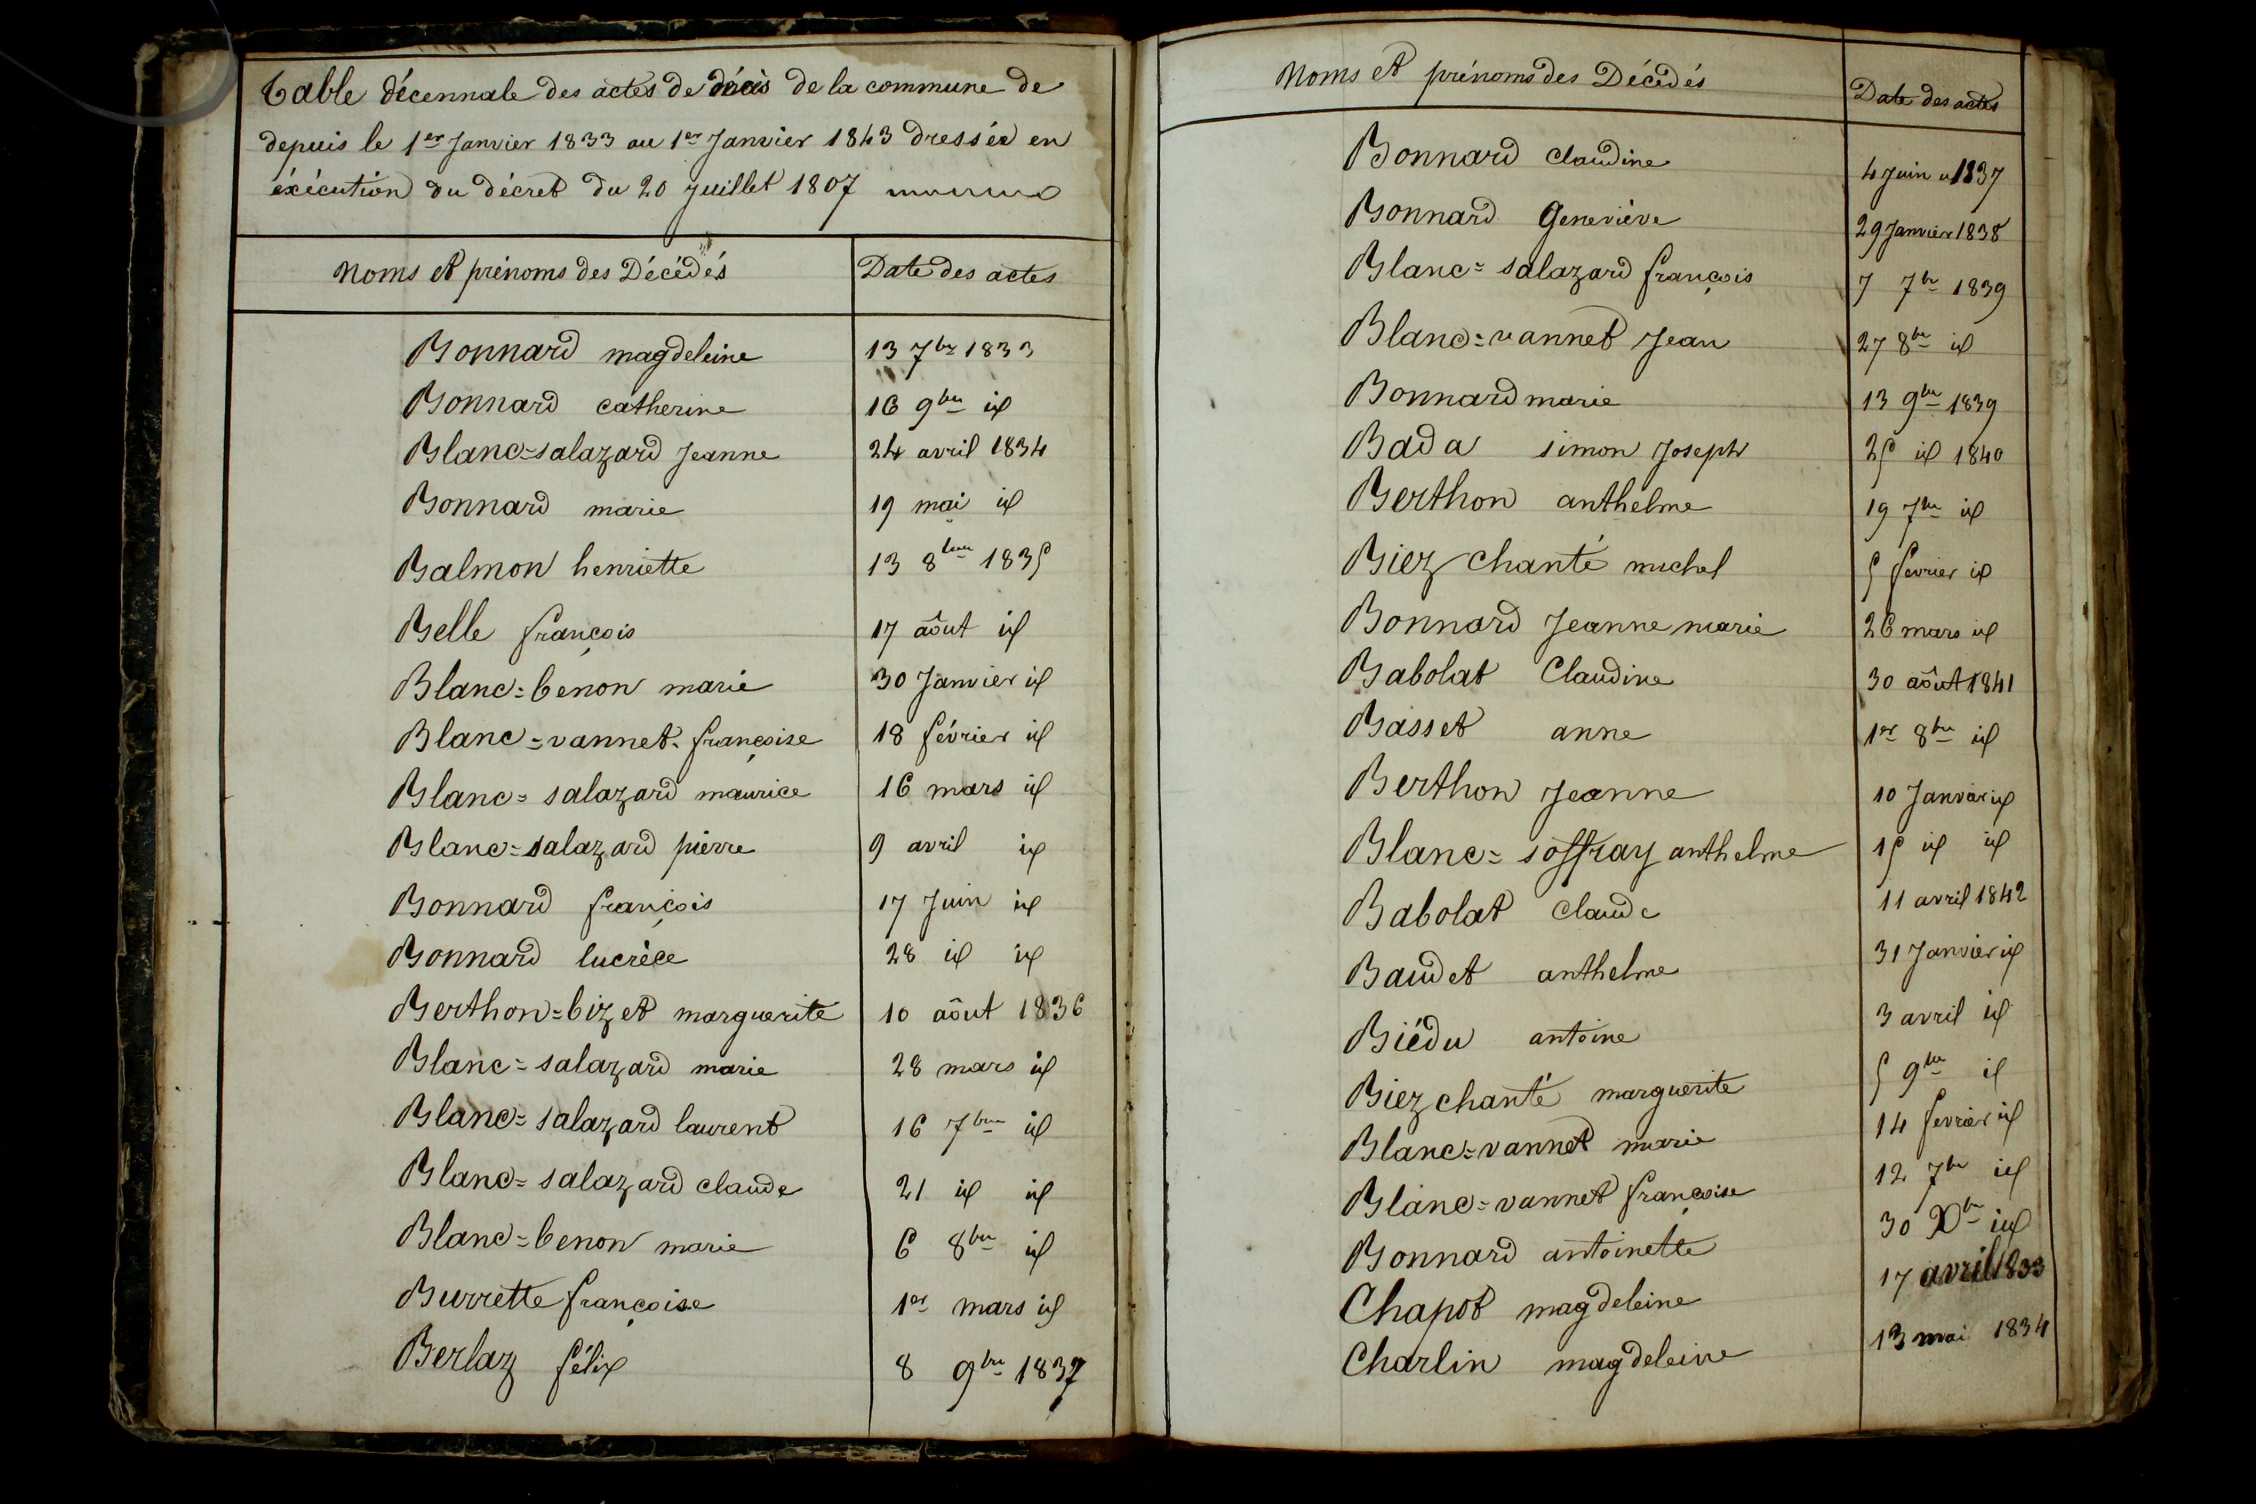 Table décennale des actes de décès de la commune de
depuis le 1er Janvier 1833 au 1er Janvier 1843 dressée en
éxécution du décret du 20 juillet 1807
Noms et prénoms des Décédés Date des actes
Bonnard magdeleine 13 7bre 1833
Bonnard catherine 16 9bre id
Blanc=salazard Jeanne 24 avril 1834
Bonnard marie 19 mai id
Balmon henriette 13 8bre 1835
Belle françois 17 aôut id
Blanc=benon marie 30 Janvier id
Blanc=vannet françoise 18 février id
Blanc=salazard maurice 16 mars id
Blanc=salazard pierre 9 avril id
Bonnard françois 17 Juin id
Bonnard lucrèce 28 id id
Berthon=bizet marguerite 10 aôut 1836
Blanc=salazard marie 28 mars id
Blanc=salazard laurent 16 7bre id
Blanc=salazard claude 21 id id
Blanc=benon marie 6 8bre id
Burrette françoise 1er mars id
Berlaz félix 8 9bre 1837
Noms et prénoms des Décédés Date des actes
Bonnard claudine 4 Juin 1837
Bonnard Geneviève 29 Janvier 1838
Blanc=salazard françois 7 7bre 1839
Blanc=vannet Jean 27 8bre id
Bonnard marie 13 9bre 1839
Bada simon Joseph 25 id 1840
Berthon anthelme 19 7bre id
Biez chanté michel 5 fevrier id
Bonnard Jeanne marie 26 mars id
Babolat Claudine 30 aôut 1841
Basset anne 1er 8bre id
Berthon Jeanne 10 Janvier id
Blanc=soffray anthelme 15 id id
Babolat claude 11 avril 1842
Baudet anthelme 31 Janvier id
Biédu antoine 3 avril id
Biez chanté marguerite 5 9bre id
Blanc=vannet marie 14 fevrier id
Blanc=vannet françoise 12 7bre id
Bonnard antoinette 30 Xbre id
Chapot magdeleine 17 avril 1833
Charlin magdeleine 13 mai 1834